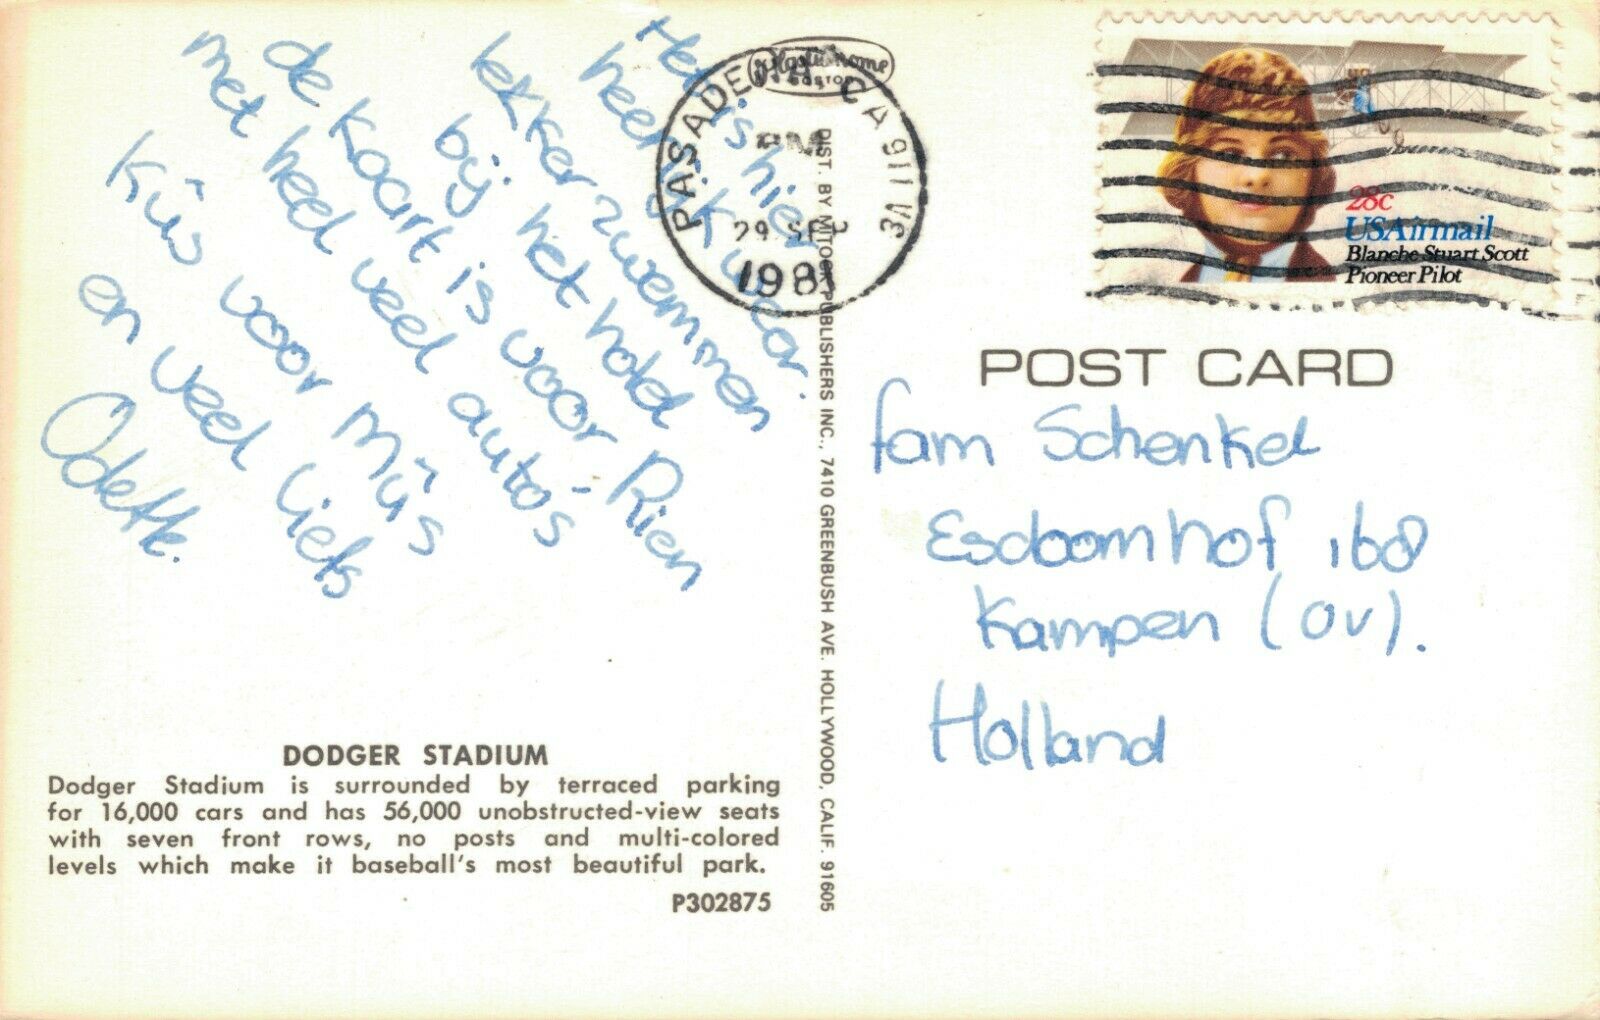 Het is hier
heerlijk weer.
lekker zwemmen
bij het hotel
de kaart is voor Rien
met heel veel auto's
Kûs voor mûs
en veel liefs
Odette.
DODGER STADIUM
Dodger Stadium is surrounded by terraced parking
for 16,000 cars and has 56,000 unobstructed-view seats
with seven front rows, no posts and multi-colored
levels which make it baseball's most beautiful park.
P302875
Plastichrome
BOSTON
DIST. BY MITOCK PUBLISHERS INC., 7410 GREENBUSH AVE. HOLLYWOOD, CALIF. 91605
PASADENA CA 911
PM
29 SEP
1981
28c
USAirmail
Blanche Stuart Scott
Pioneer Pilot
POST CARD
fam Schenkel
Esdoornhof 168
Kampen (OV).
Holland